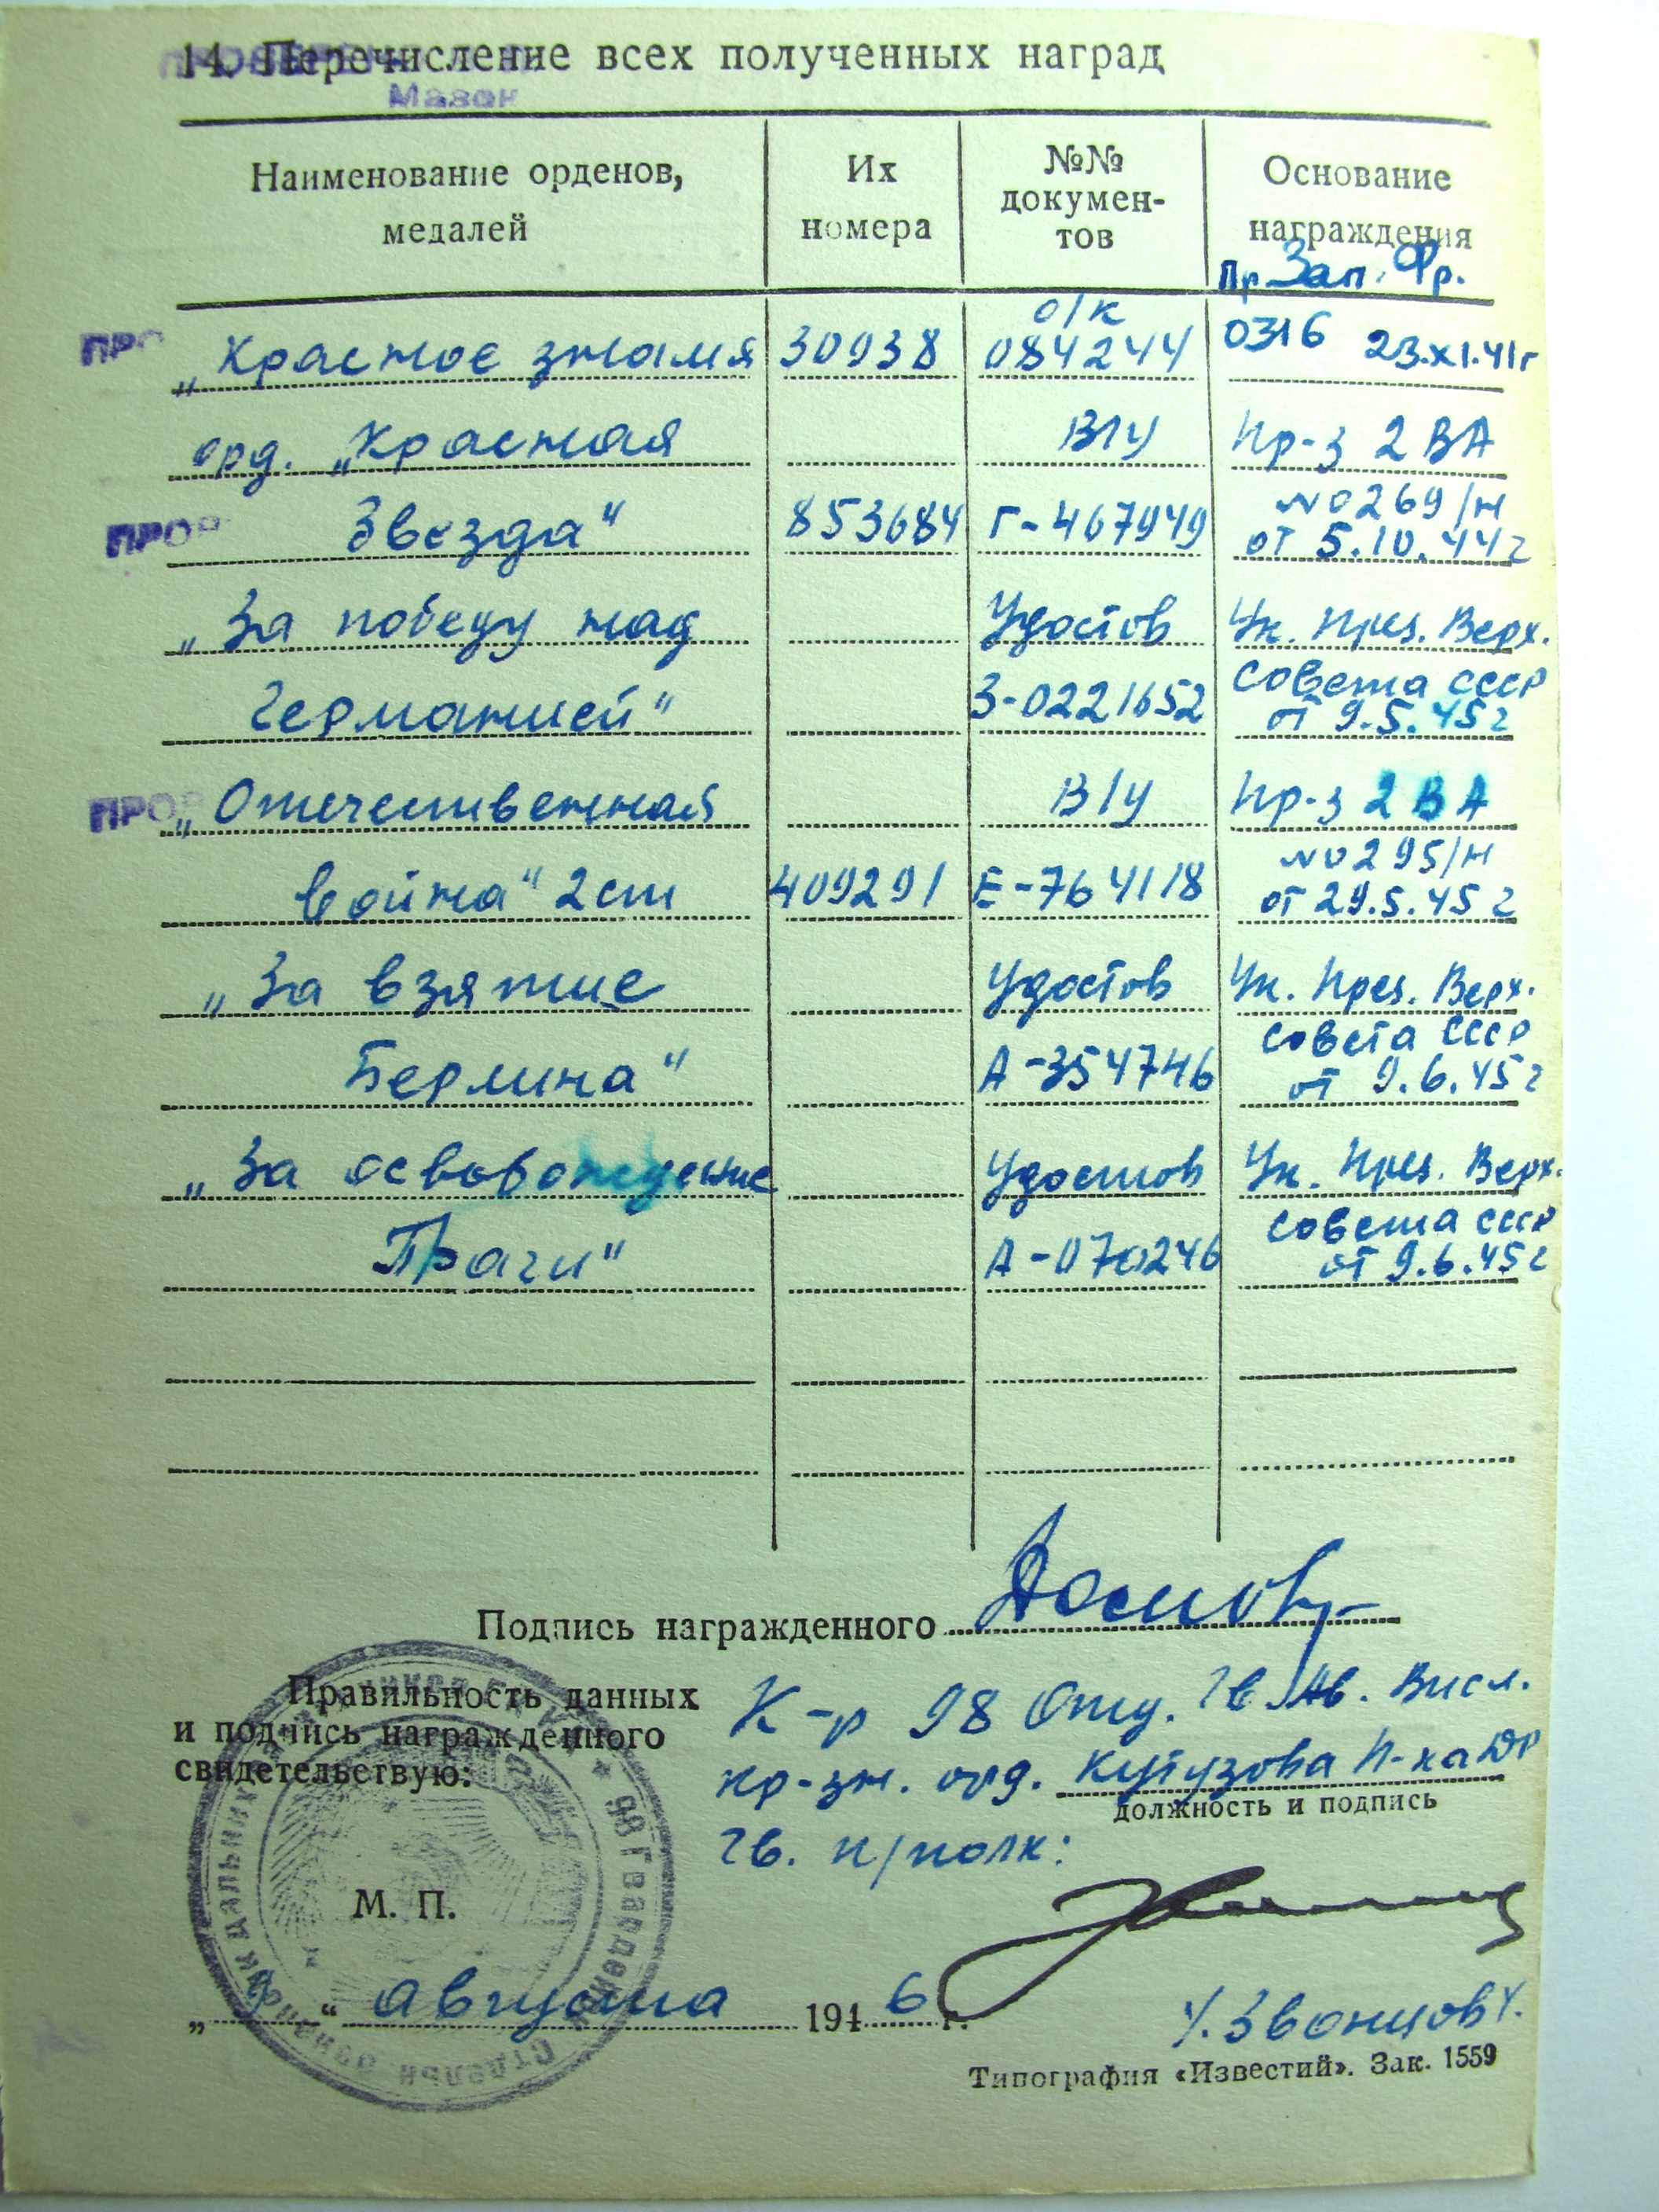 14. Перечисление всех полученных наград
Мазок
Наименование орденов, медалей | Их номера | №№ докумен-тов | Основание награждения
Пр. Зап. Фр.
ПРО „Красное знамя 30938 о/к 084244 0316 23.XI.41г
орд. „Красная В/у Пр-з 2 ВА
ПРОВ Звезда" 853684 Г-467949 №0269/н от 5.10.44г
„За победу над Удостов Ук. През. Верх.
Германией" З-0221652 Совета СССР от 9.5.45г
ПРОВ „Отечественная В/у Пр-з 2 ВА
война" 2 ст 409291 Е-764118 №0295/н от 29.5.45г
„За взятие Удостов Ук. През. Верх.
Берлина" А-354746 Совета СССР от 9.6.45г
„За освобождение Удостов Ук. През. Верх.
Праги" А-070246 Совета СССР от 9.6.45г
Подпись награжденного
Правильность данных
и подпись награжденного
свидетельствую:
К-р 98 Отд. Гв. Ав. Висл.
кр-зн. орд. Кутузова П-ка ДР
должность и подпись
гв. п/полк:
М. П.
98 Гвардейский
„9" августа 1946 г.
/. Званцов /.
Типография «Известий». Зак. 1559